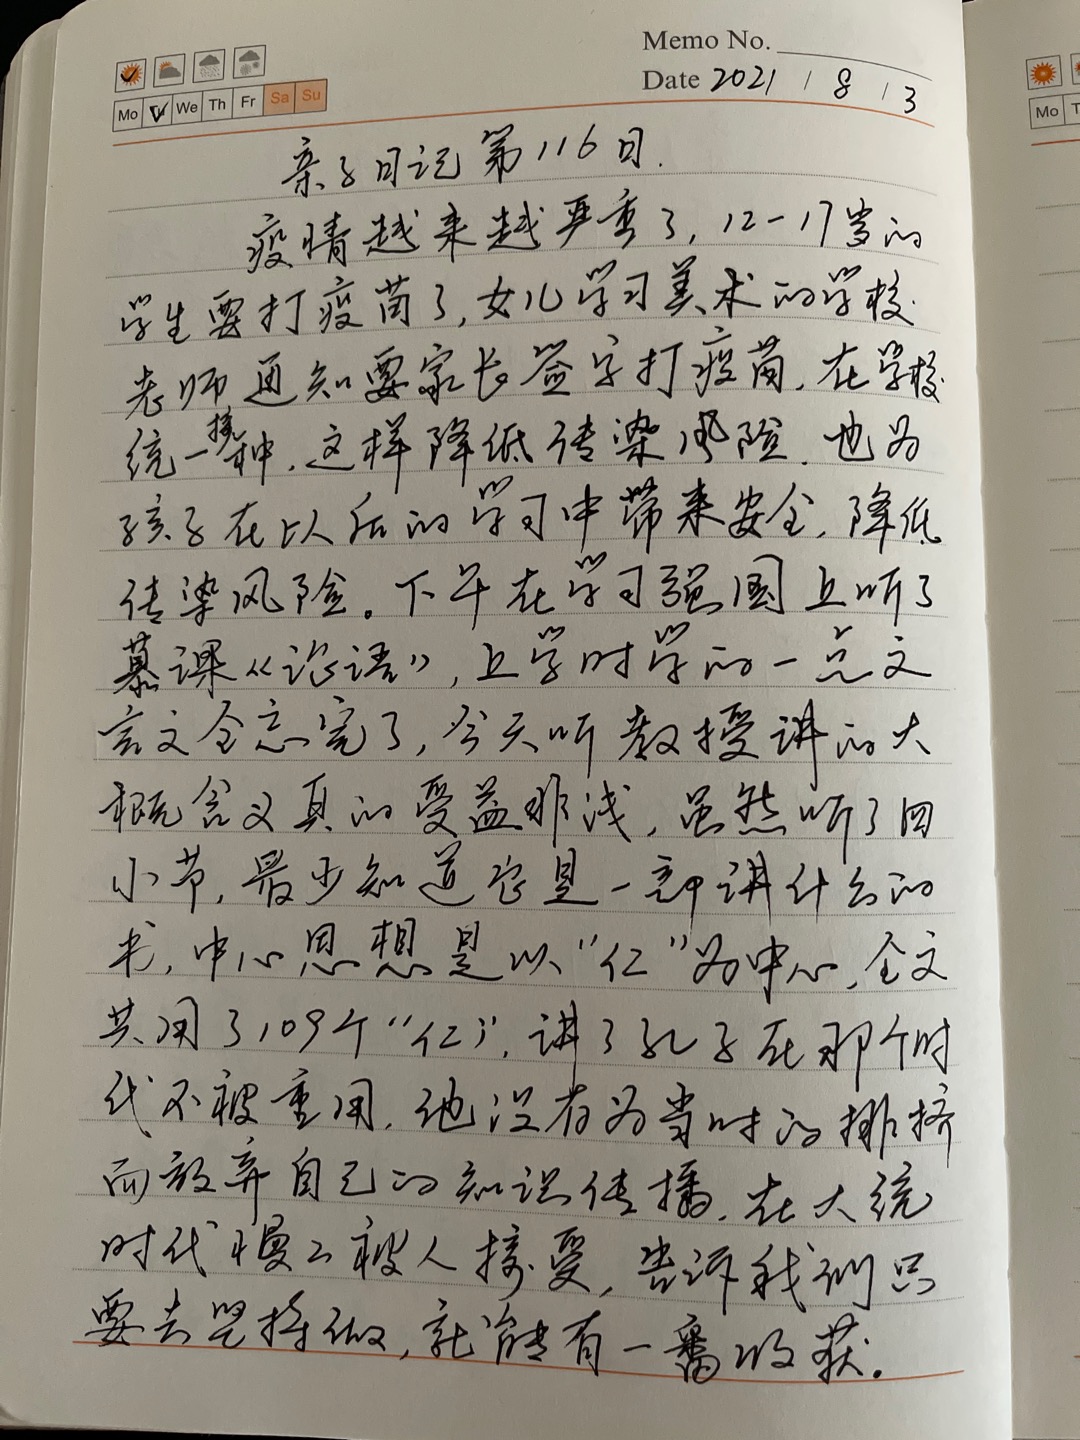 Memo No.
Mo Tu We Th Fr Sa Su
Date 2021 / 8 / 3
Mo T
亲子日记第116日.
疫情越来越严重了,12-17岁的
学生要打疫苗了,女儿学习美术的学校
老师通知要家长签字打疫苗.在学校
统一接种.这样降低传染风险.也为
孩子在以后的学习中带来安全.降低
传染风险。下午在学习强国上听了
慕课《论语》,上学时学的一点文
言文全忘完了,今天听教授讲的大
概含义真的受益非浅,虽然听了四
小节,最少知道它是一部讲什么的
书,中心思想是以“仁”为中心,全文
共用了109个“仁”,讲了孔子在那个时
代不被重用.他没有为当时的排挤
而放弃自己的知识传播.在大统
时代慢々被人接受,告诉我们只
要去坚持做,就能有一番收获。